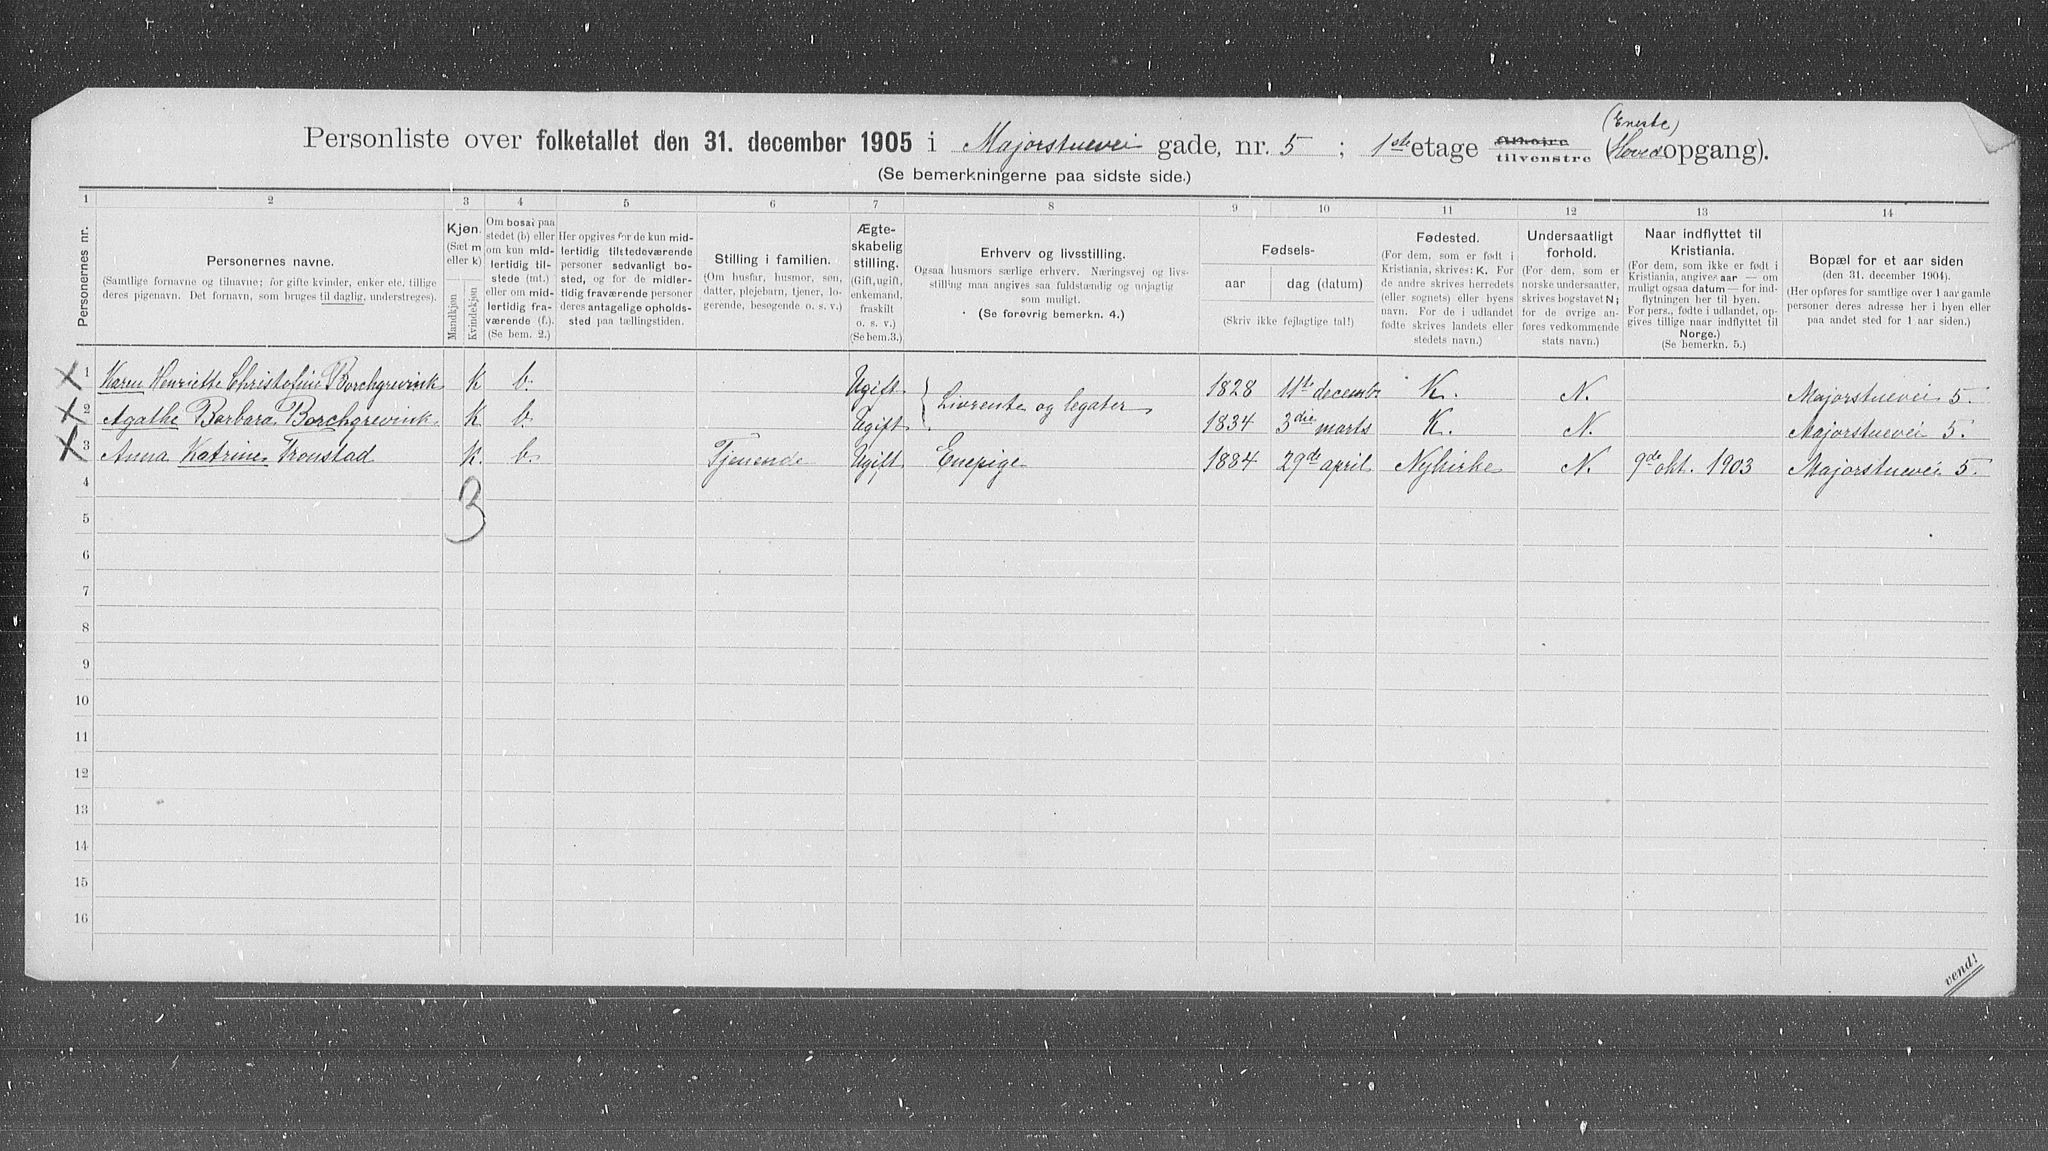 Personliste over folketallet den 31. december 1905 i Majorstuevei gade, nr. 5 ; 1ste etage tilhøire tilvenstre (Eneste) (Hovedopgang).
(Se bemerkningerne paa sidste side.)
1 2 3 4 5 6 7 8 9 10 11 12 13 14
Personernes nr.
Personernes navne.
(Samtlige fornavne og tilnavne; for gifte kvinder, enker etc. tillige deres pigenavn. Det fornavn, som bruges til daglig, understreges).
Kjøn.
(Sæt m eller k)
Mandkjøn
Kvindekjøn
Om bosat paa stedet (b) eller om kun midlertidig tilstede (mt.) eller om midlertidig fraværende (f.). (Se bem. 2.)
Her opgives for de kun midlertidig tilstedeværende personer sedvanligt bosted, og for de midlertidig fraværende personer deres antagelige opholdssted paa tællingstiden.
Stilling i familien.
(Om husfar, husmor, søn, datter, plejebarn, tjener, logerende, besøgende o. s. v.)
Ægteskabelig stilling.
(Gift, ugift, enkemand, fraskilt o. s. v.) (Se bem. 3.)
Erhverv og livsstilling.
Ogsaa husmors særlige erhverv. Næringsvej og livsstilling maa angives saa fuldstændig og nøjagtig som muligt.
(Se forøvrig bemerkn. 4.)
Fødsels-
aar
dag (datum)
(Skriv ikke fejlagtige tal!)
Fødested.
(For dem, som er født i Kristiania, skrives: K. For de andre skrives herredets (eller sognets) eller byens navn. For de i udlandet fødte skrives landets eller stedets navn.)
Undersaatligt forhold.
(For dem, som er norske undersaatter, skrives bogstavet N; for de øvrige anføres vedkommende stats navn.)
Naar indflyttet til Kristiania.
(For dem, som ikke er født i Kristiania, angives aar — om muligt ogsaa datum — for indflytningen her til byen. For pers., fødte i udlandet, opgives tillige naar indflyttet til Norge.)
(Se bemerkn. 5.)
Bopæl for et aar siden
(den 31. december 1904).
(Her opføres for samtlige over 1 aar gamle personer deres adresse her i byen eller paa andet sted for 1 aar siden.)
X 1 Karen Henriette Christofine Borchgrevink K b. Ugift } Livrente og legater 1828 11te decemb. K. N. Majorstuevei 5.
X 2 Agathe Barbara Borchgrevink K. b. Ugift 1834 3die marts K. N. Majorstuevei 5.
X 3 Anna Katrine Tronstad K. b. Tjenende Ugift Enepige 1884 29de april Nykirke N. 9de okt. 1903 Majorstuevei 5.
4
3
5
6
7
8
9
10
11
12
13
14
15
16
vend!